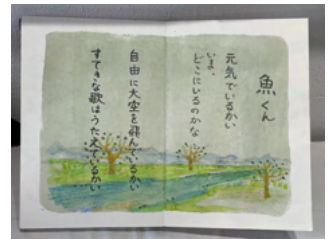 魚くん
元気でいるかい
いま、
どこにいるのかな
自由に大空を飛んでいるかい
すてきな歌はうたえているかい